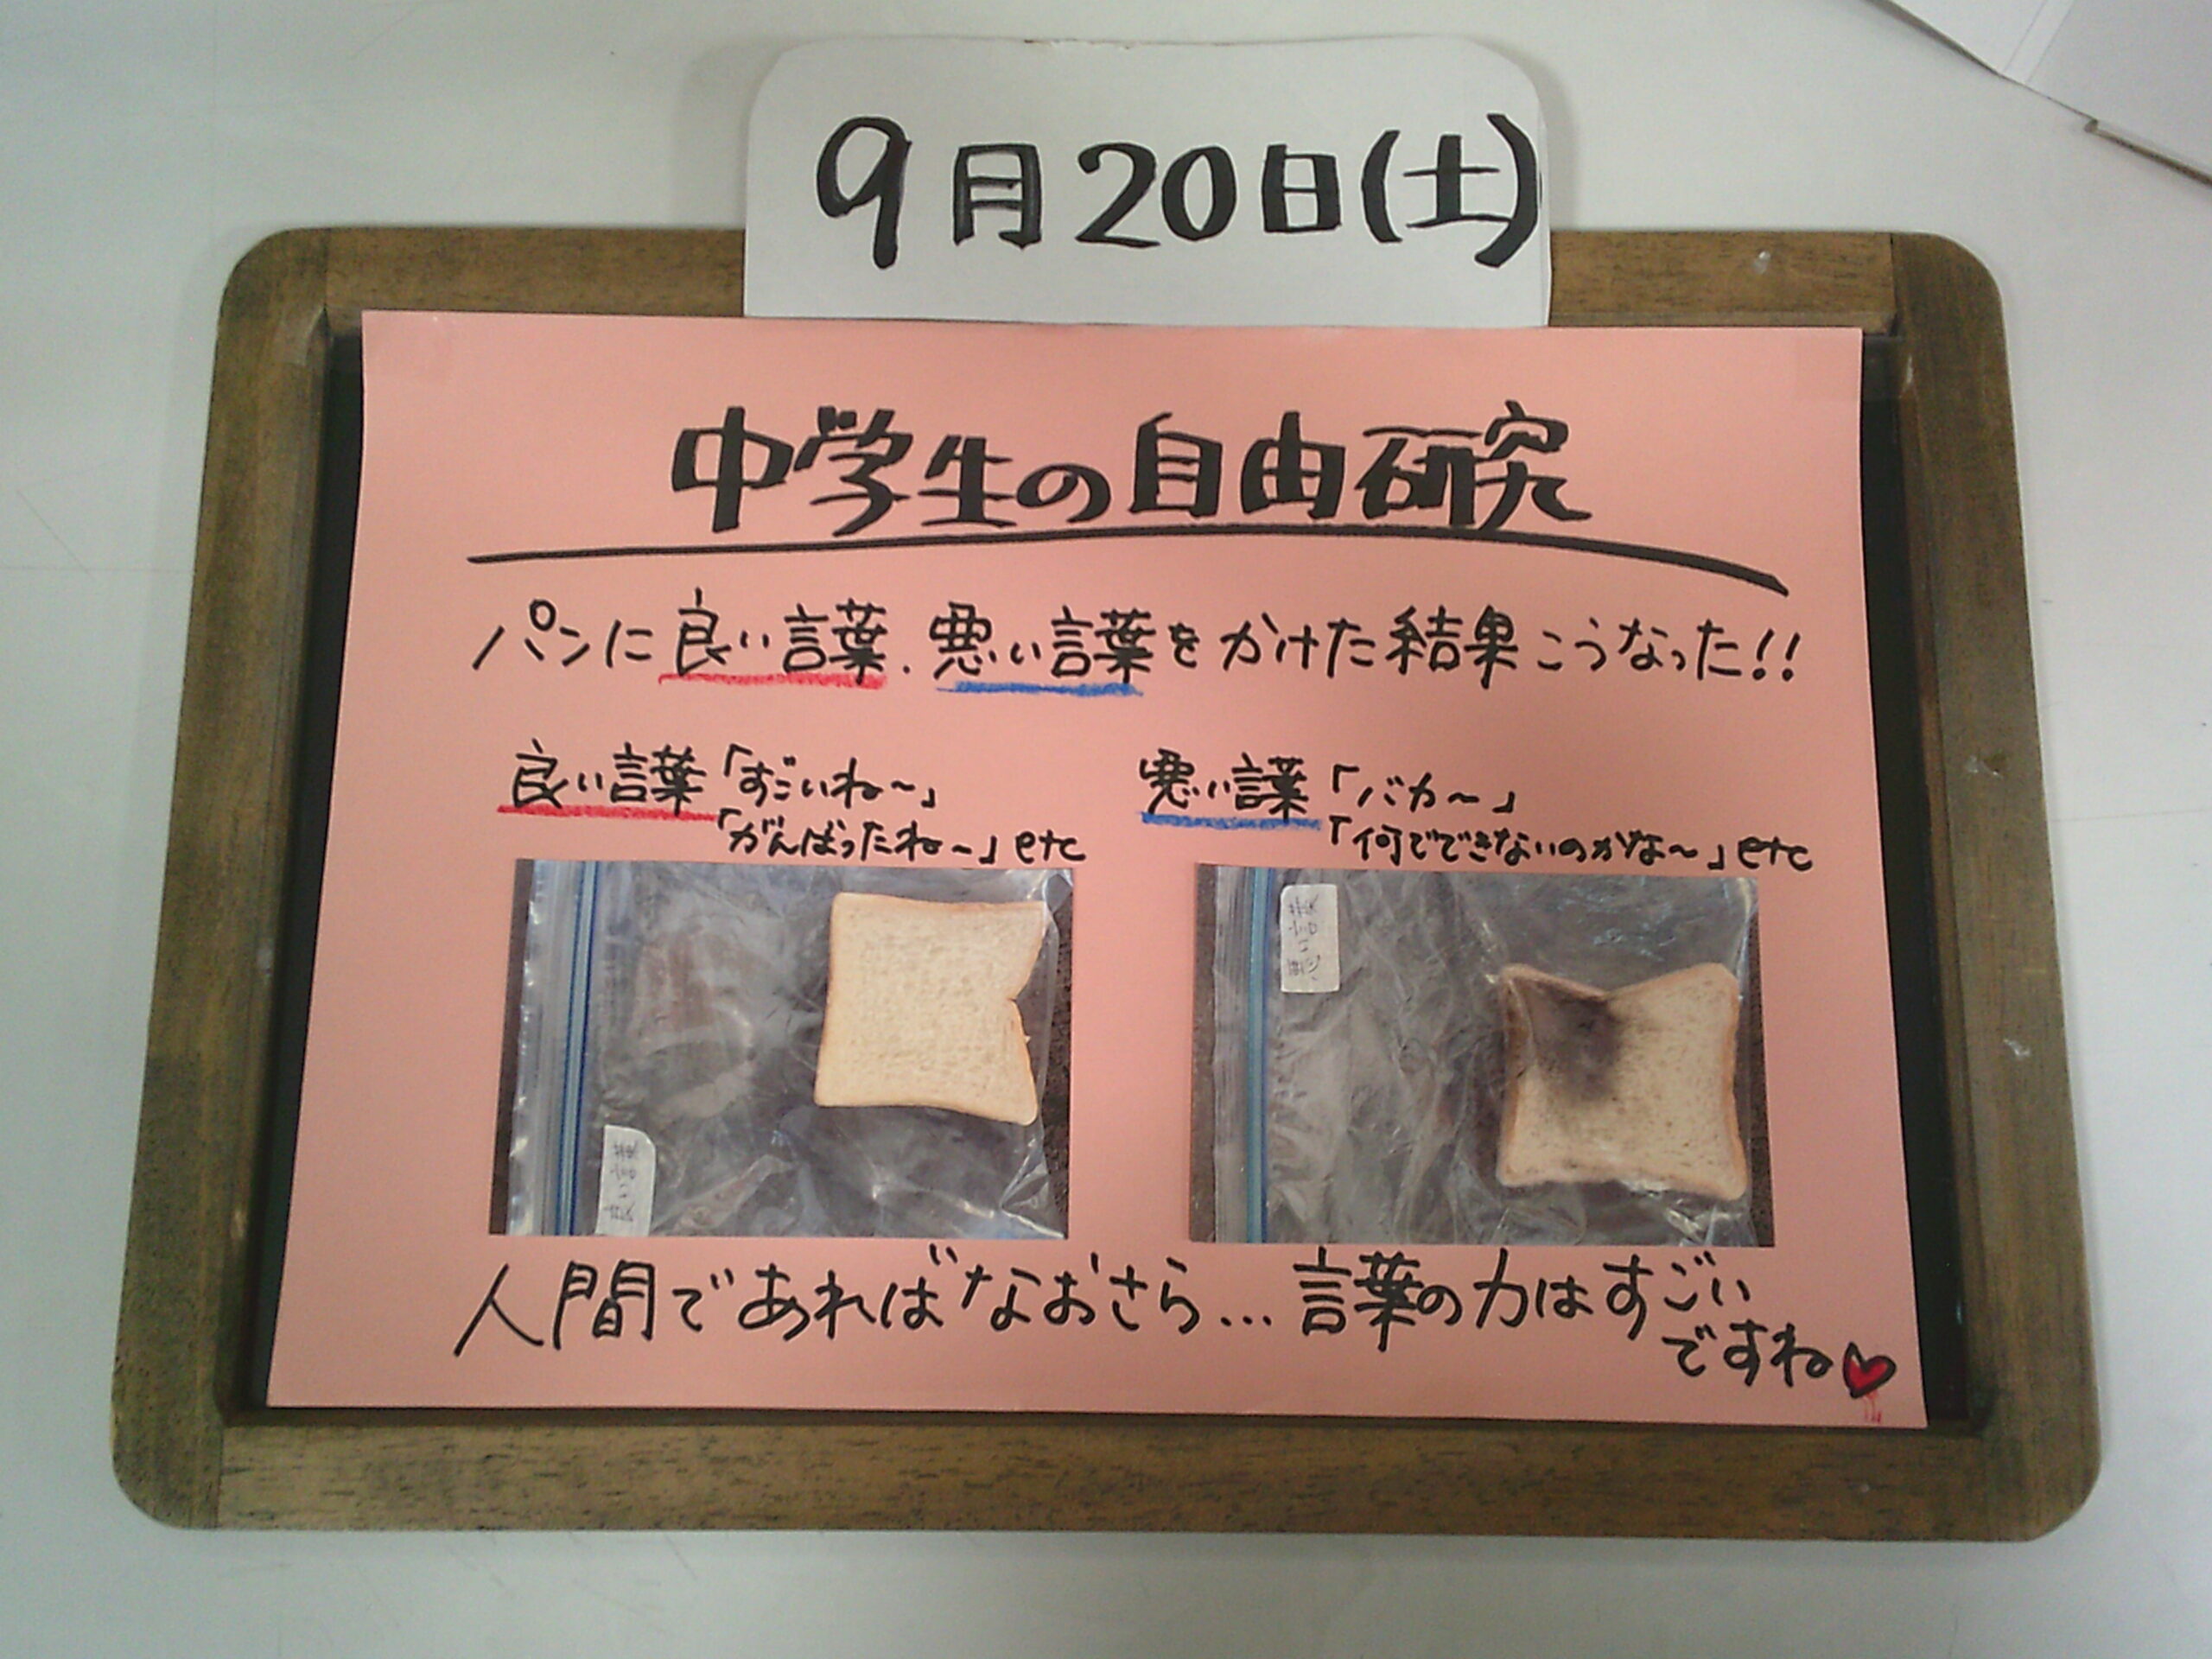 9月20日(土)
中学生の自由研究
パンに良い言葉、悪い言葉をかけた結果こうなった!!
良い言葉「すごいね〜」
「がんばったね〜」etc
悪い言葉「バカ〜」
「何でできないのかな〜」etc
良い言葉
悪い言葉
人間であればなおさら…言葉の力はすごい
ですね